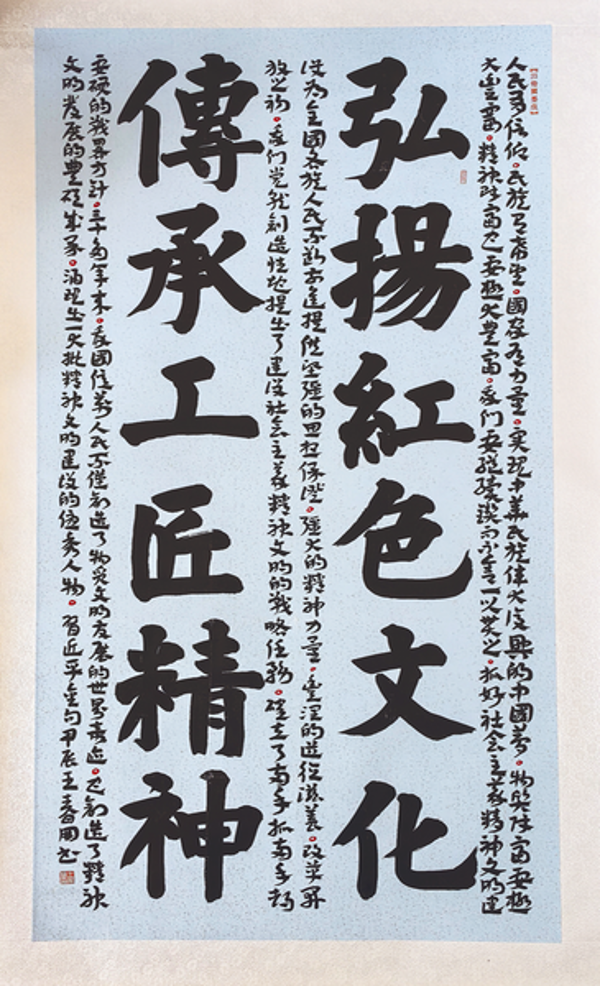 人民有信仰。民族有希望。國家有力量。实现中華民族伟大復興的中國夢。物质财富要極
大豐富。精神财富也要極大豐富。我们要继续锲而不舍一以贯之。抓好社会主義精神文明建
弘揚紅色文化
设为全國各族人民不断前進提供坚强的思想保证。强大的精神力量。豐润的道德滋養。改革開
放之初。我们党就创造性地提出了建设社会主義精神文明的战略任務。确立了两手抓两手都
傳承工匠精神
要硬的戰略方針。三十多年来。我國億萬人民不僅创造了物质文明发展的世界奇迹。也创造了精神
文明发展的豐硕成果。涌现出一大批精神文明建设的优秀人物。習近平金句甲辰王春国书